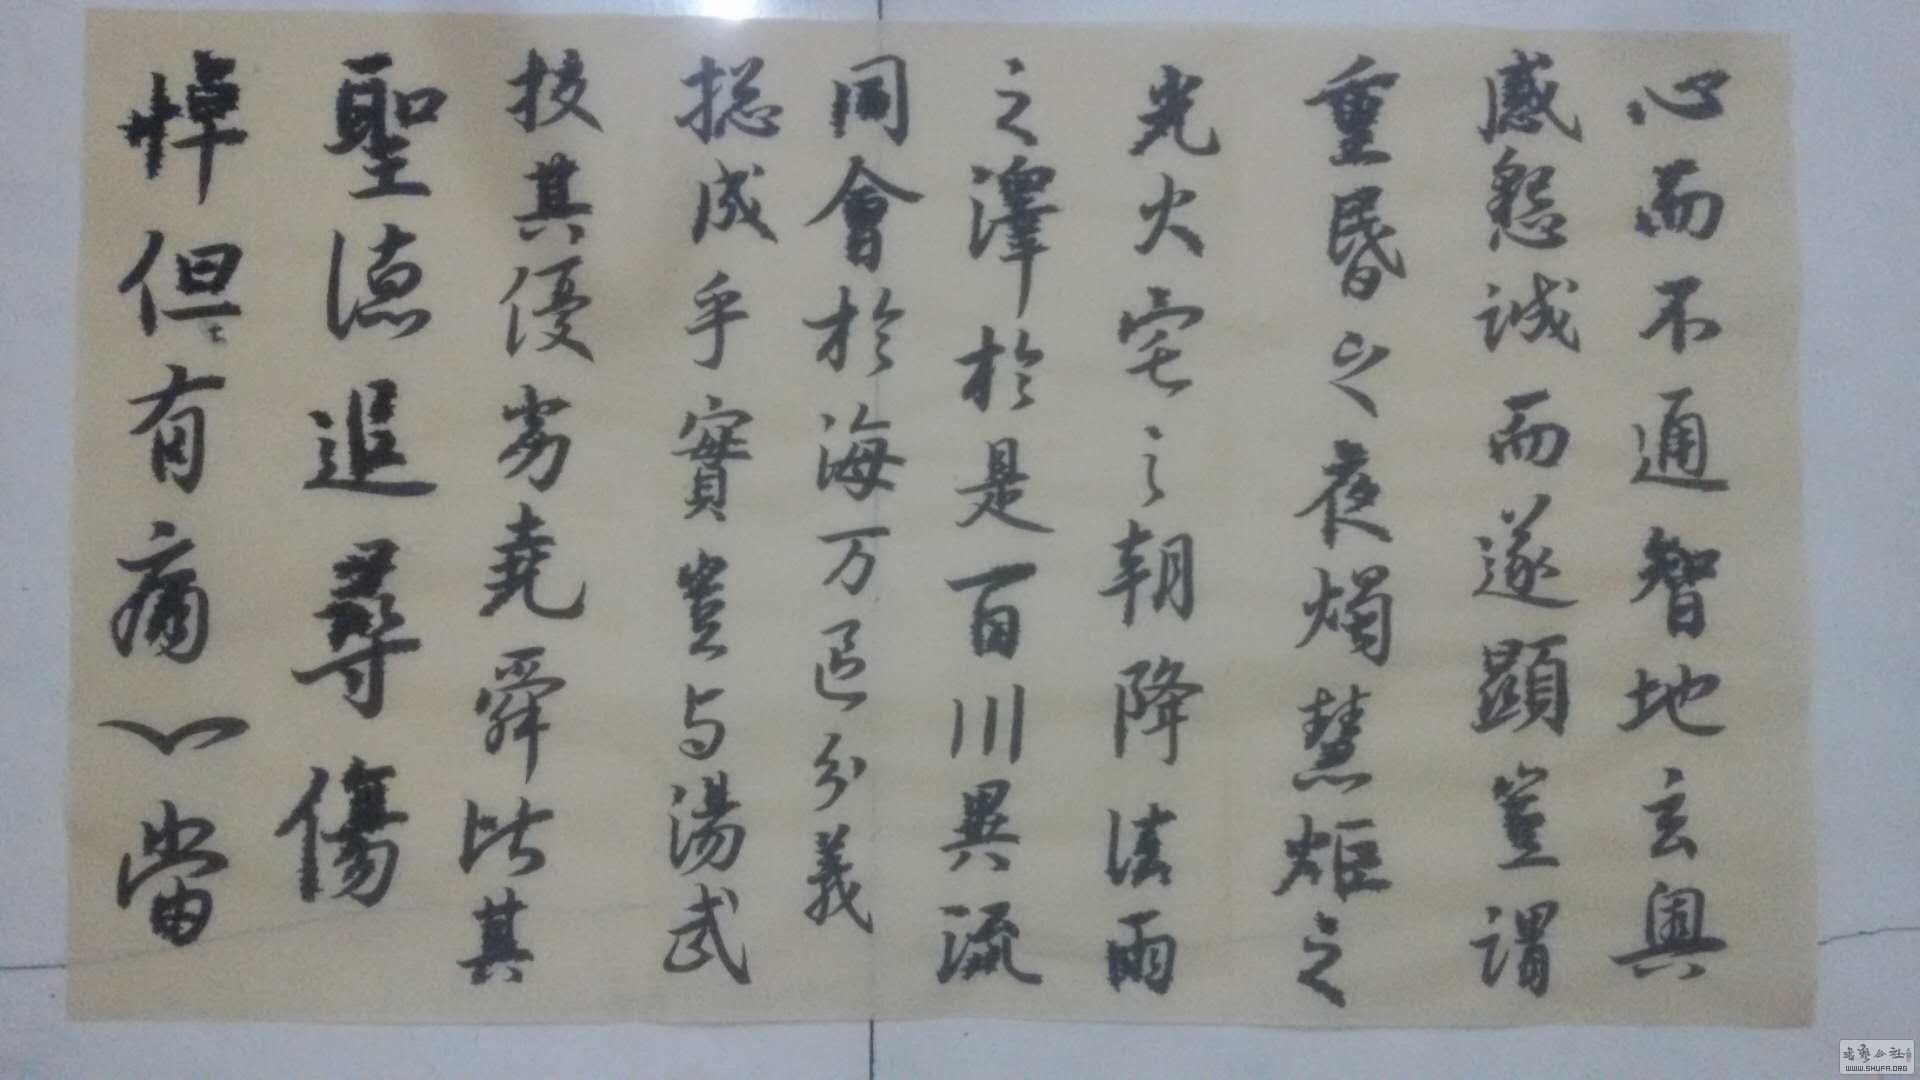 心而不通智地玄奧
感懇誠而遂顯豈謂
重昏之夜燭慧炬之
光火宅之朝降法雨
之澤於是百川異流
同會於海万區分義
捴成乎實豈与湯武
挍其優劣堯舜比其
聖德追尋傷
悼但有痛心當
書藝公社
WWW.SHUFA.ORG